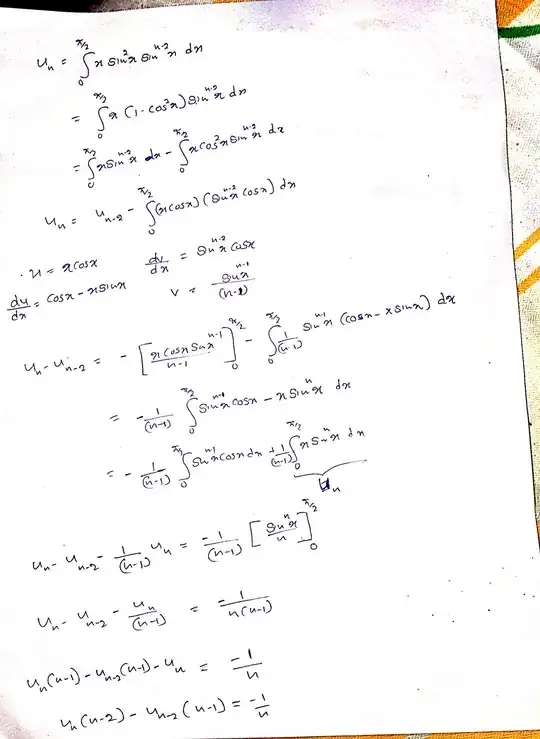 u_n = ∫_0^{π/2} x sin^2 x sin^{n-2} x dx
= ∫_0^{π/2} x (1 - cos^2 x) sin^{n-2} x dx
= ∫_0^{π/2} x sin^{n-2} x dx - ∫_0^{π/2} x cos^2 x sin^{n-2} x dx
u_n = u_{n-2} - ∫_0^{π/2} (x cos x) (sin^{n-2} x cos x) dx
u = x cos x dv/dx = sin^{n-2} x cos x
du/dx = cos x - x sin x v = sin^{n-1} x/(n-1)
u_n - u_{n-2} = - [x cos x sin x^{n-1}/n-1]_0^{π/2} - ∫_0^{π/2} 1/(n-1) sin^{n-1} x (cos x - x sin x) dx
= -1/(n-1) ∫_0^{π/2} sin^{n-1} x cos x - x sin^n x dx
= -1/(n-1) ∫_0^{π/2} sin^{n-1} x cos x dx + 1/(n-1) ∫_0^{π/2} x sin^n x dx
u_n
u_n - u_{n-2} - 1/(n-1) u_n = -1/(n-1) [sin^n x/n]_0^{π/2}
u_n - u_{n-2} - u_n/(n-1) = -1/n(n-1)
u_n (n-1) - u_{n-2} (n-1) - u_n = -1/n
u_n (n-2) - u_{n-2} (n-1) = -1/n